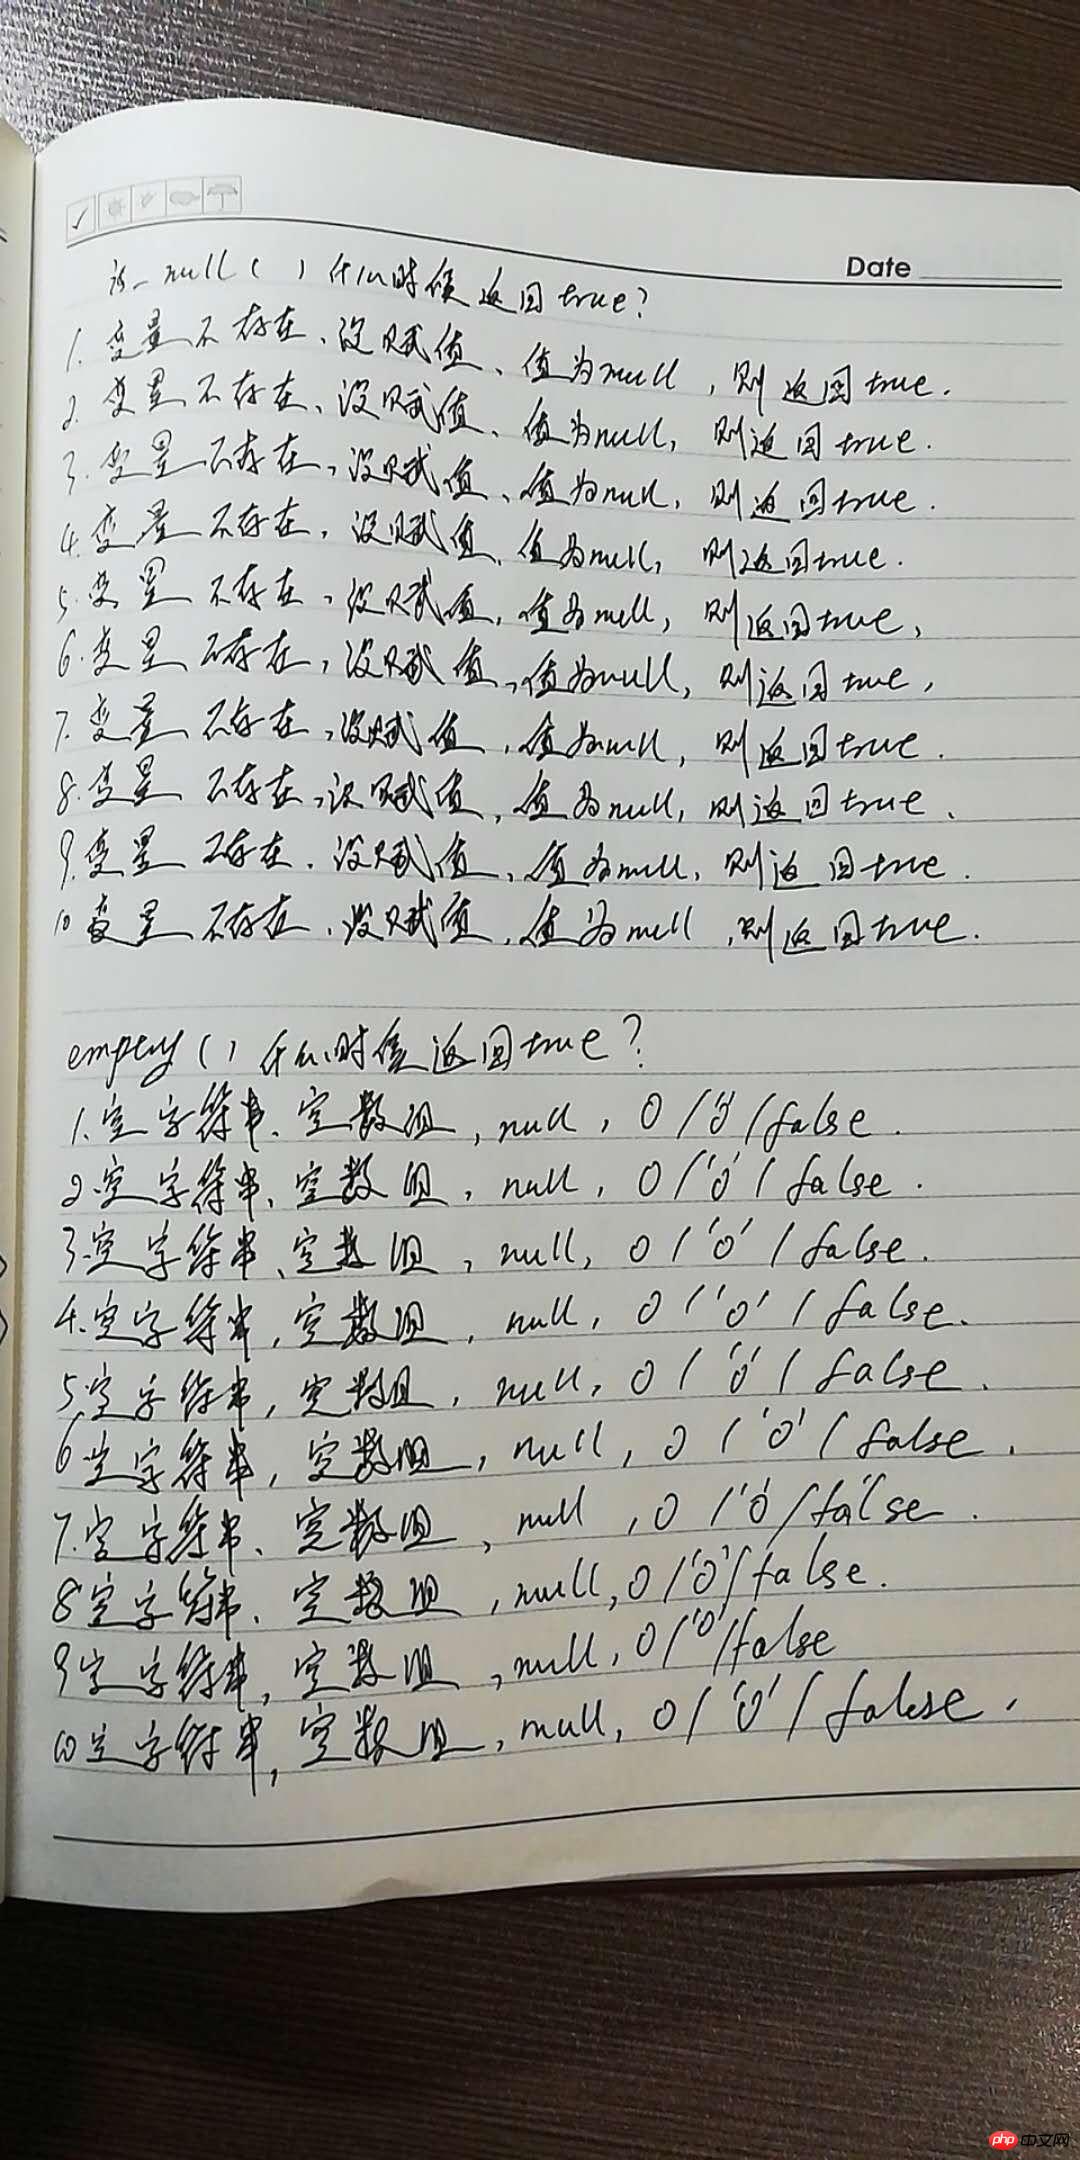 Date
is_null( ) 什么时候返回true?
1. 变量不存在、没赋值、值为null，则返回true.
2. 变量不存在、没赋值、值为null，则返回true.
3. 变量不存在，没赋值、值为null，则返回true.
4. 变量不存在，没赋值、值为null，则返回true.
5. 变量不存在，没赋值，值为null，则返回true,
6. 变量不存在，没赋值，值为null，则返回true,
7. 变量不存在，没赋值，值为null，则返回true.
8. 变量不存在，没赋值，值为null，则返回true.
9. 变量不存在、没赋值，值为null，则返回true.
10 变量不存在、没赋值，值为null，则返回true.
empty( ) 什么时候返回true?
1. 空字符串、空数组，null，0/'0'/false.
2. 空字符串、空数组，null，0/'0'/false.
3. 空字符串、空数组，null，0/'0'/false.
4. 空字符串，空数组，null，0/'0'/false.
5. 空字符串，空数组，null，0/'0'/false.
6 空字符串，空数组，null，0/'0'/false.
7. 空字符串、空数组，null，0/'0'/false.
8 空字符串、空数组，null，0/'0'/false.
9 空字符串，空数组，null，0/'0'/false
10 空字符串，空数组，null，0/'0'/false.
php 中文网